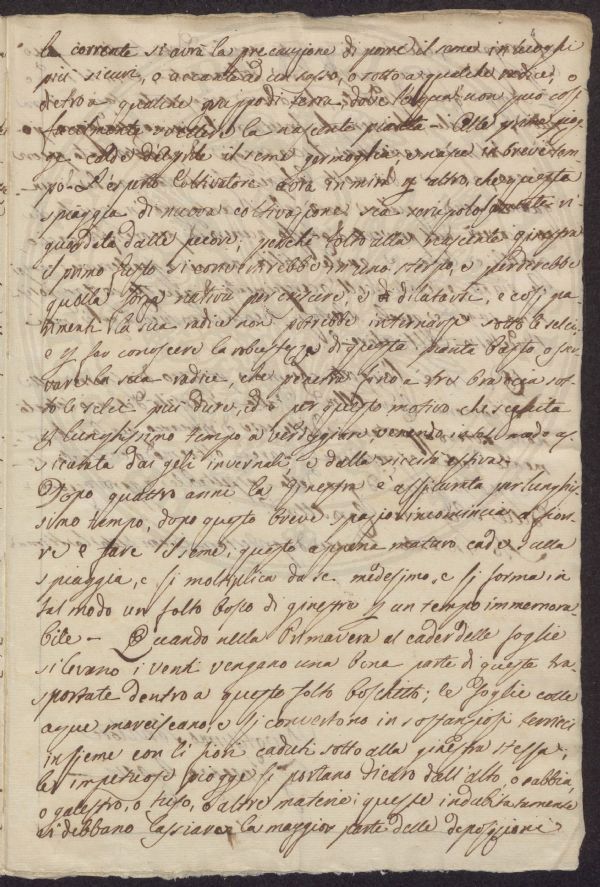 la corrente si avrà la precauzione di porre il seme in luoghi
più sicuri, o accanto ad un sasso, o sotto a qualche radice, o
dietro a qualche gruppo di terra, dove l'acqua non può così
facilmente svellere la nascente pianta — Alle prime piog-
ge calde d'Aprile il seme germoglia, e nasce in breve tem-
po. L'esperto Coltivatore avrà in mira p altro, che questa
spiaggia di nuova coltivazione sia scrupolosamente ri-
guardata dalle pecore, perchè tolto alla nascente ginestra
il primo fusto si convertirebbe in uno sterpo, e perderebbe
quella forza nativa per crescere, e dilatarsi, e così pa-
rimenti la sua radice non potrebbe internarsi sotto le selci
e p far conoscere la robustezza di questa pianta basta osser-
vare la sua radice, che penetra fino a tre braccia sot-
to le selci più dure, ed è per questo motivo che seguita
p lunghissimo tempo a verdeggiare, venendo in tal modo as-
sicurata dai geli invernali, e dalla siccità estiva.
Dopo quattro anni la Ginestra è assicurata per lunghis-
simo tempo, dopo questo breve spazio incomincia a fiori-
re e fare il seme, questo appena maturo cade sulla
spiaggia, e si moltiplica da se medesimo, e si forma in
tal modo un folto bosco di ginestre p un tempo immemora-
bile — Quando nella Primavera al cader delle foglie
si levano i venti vengano una bona parte di queste tra-
sportate dentro a questo folto boschetto; le foglie colle
aque marciscano, e si convertono in sostanziosi terricci
insieme con li fiori caduti sotto alla ginestra stessa;
le impetuose piogge si portano dietro dall'alto, o sabbia,
o galestro, o tufo, o altre materie; queste indubitatamente
vi debbano lassiare la maggior parte delle deposizioni